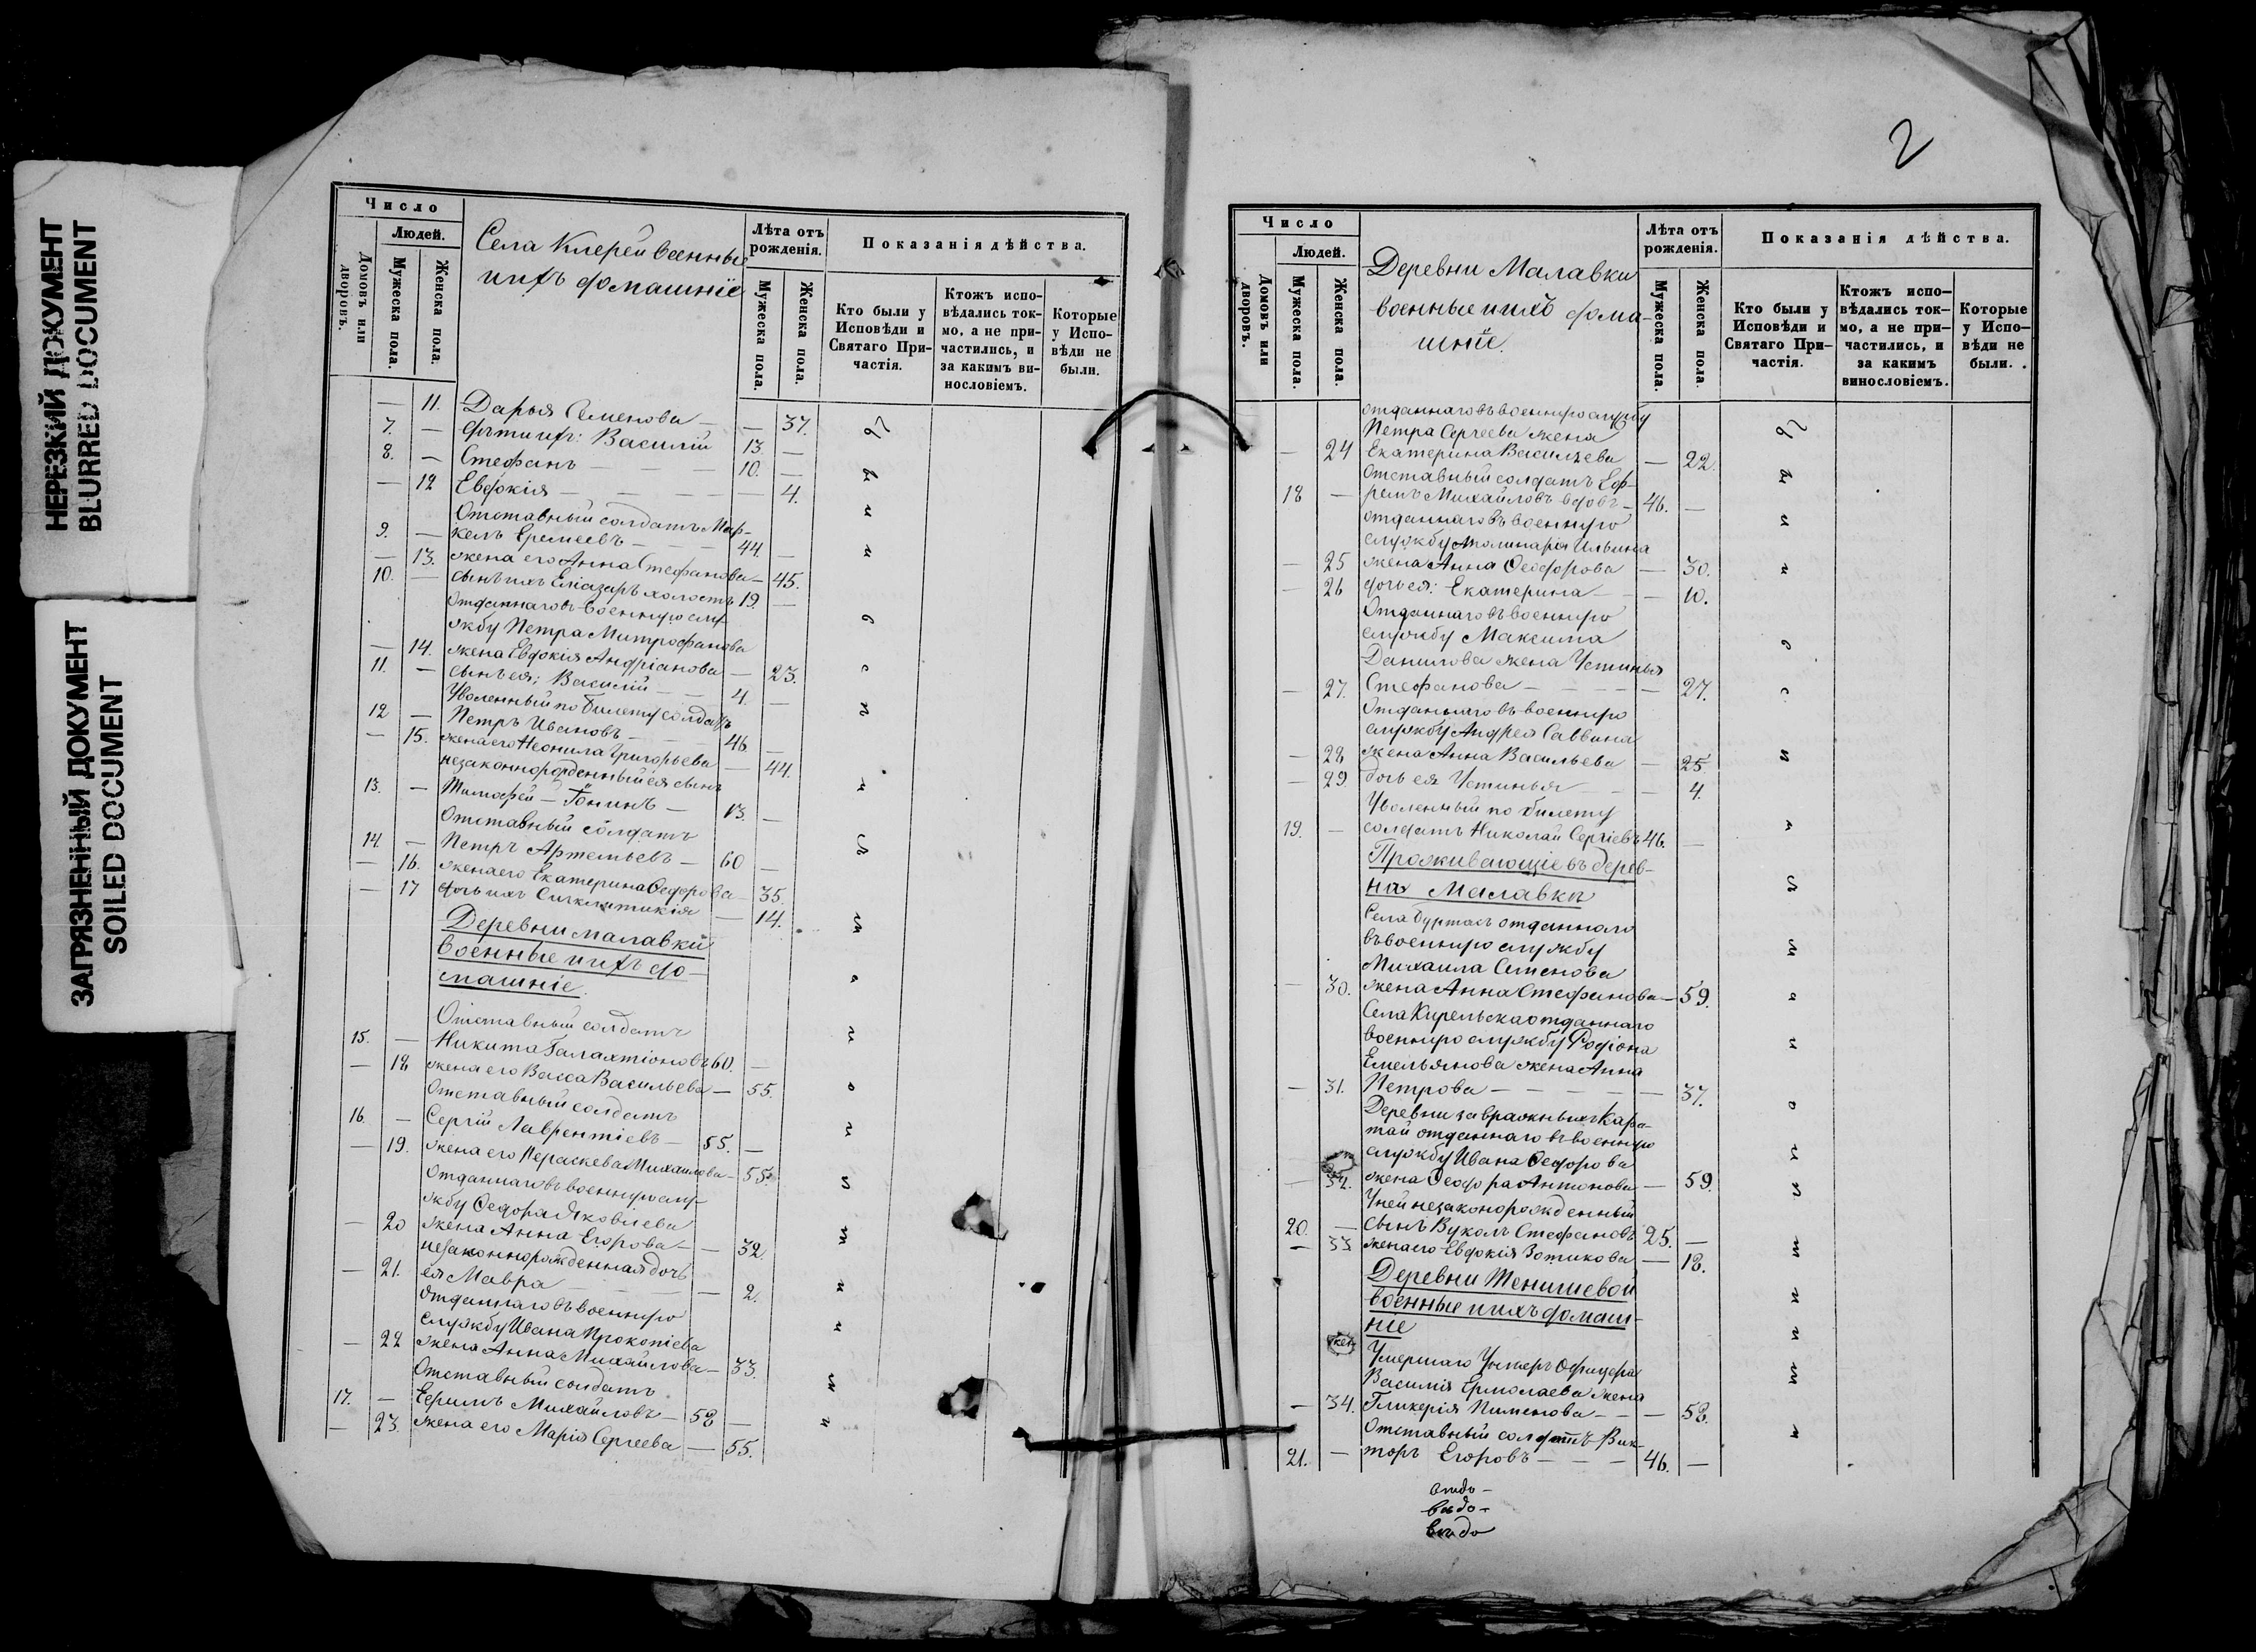 НЕРЕЗКИЙ ДОКУМЕНТ
BLURRED DOCUMENT
ЗАГРЯЗНЕННЫЙ ДОКУМЕНТ
SOILED DOCUMENT
Число
Людей.
Домовъ или дворовъ.
Мужеска пола.
Женска пола.
Села Клерей военные
ихъ домашніе
Лѣта отъ рожденія.
Мужеска пола.
Женска пола.
Показанія дѣйства.
Кто были у Исповѣди и Святаго Причастія.
Ктожъ исповѣдались токмо, а не причастились, и за какимъ винословіемъ.
Которые у Исповѣди не были.
— 11. Дарья Семенова — — 37.
7. — дѣти ихъ: Василій 13. —
8. — Стефанъ — — — 10. —
— 12 Евдокія — — — — 4.
Отставный солдатъ Мар-
9. — келъ Еремеевъ — — — 44 —
— 13. жена его Анна Стефанова — 45.
10. — сынъ ихъ Еліазаръ холостъ 19. —
Отданнаго въ военную слу-
жбу Петра Митрофанова
— 14. жена Евдокія Андріанова — 23.
11. — сынъ ея: Василій — — 4. —
Уволенный по билету солдатъ
12 — Петръ Ивановъ — — — 46 —
— 15. жена его Неонила Григорьева — 44.
незаконнорожденный ея сынъ
13. — Тимофей — — 13. —
Отставный солдатъ
14 — Петръ Артемьевъ — 60 —
— 16. жена его Екатерина Ѳедорова — 35.
— 17 дочь ихъ Синклитикія — 14.
Деревни Малавки
военные ихъ до-
машніе.
Отставный солдатъ
15. — Никита Галахтіоновъ 60. —
— 18 жена его Васса Васильева — 55.
Отставный солдатъ
16. — Сергій Лаврентіевъ — 55. —
— 19. жена его Пераскева Михаилова — 55.
Отданнаго въ военную слу-
жбу Ѳедора Яковлева
— 20 жена Анна Егорова — — 32.
незаконнорожденная дочь
— 21. ея Мавра — — — — 2.
Отданнаго въ военную
службу Ивана Прокопіева
— 22 жена Анна Михайлова — 33.
Отставный солдатъ
17. — Ефимъ Михайловъ — 58 —
— 23. жена его Марія Сергеева — 55.
2
Число
Людей.
Домовъ или дворовъ.
Мужеска пола.
Женска пола.
Деревни Малавки
военные ихъ дома-
шніе.
Лѣта отъ рожденія.
Мужеска пола.
Женска пола.
Показанія дѣйства.
Кто были у Исповѣди и Святаго Причастія.
Ктожъ исповѣдались токмо, а не причастились, и за какимъ винословіемъ.
Которые у Исповѣди не были.
отданнаго въ военную службу
Петра Сергеева жена
— 24 Екатерина Васильева — 22.
Отставный солдатъ Еф-
18 — ремъ Михайловъ вдовъ — 46. —
отданнаго въ военную
службу Ильина
— 25 жена Анна Ѳеодорова — 30.
— 26 дочь ея: Екатерина — — 10.
Отданнаго въ военную
службу Максима
Данилова жена Устинья
— 27. Стефанова — — — — 27.
Отданнаго въ военную
службу Андрея Саввина
— 28 жена Анна Васильева — 25.
— 29. дочь ея Устинья — — — 4.
Уволенный по билету
19. — солдатъ Николай Сергіевъ 46. —
Проживающіе въ дерев-
на Малавки
Села Буртасъ отданнаго
въ военную службу
Михаила Семенова
— 30. жена Анна Стефанова — 59.
Села Кирельска отданнаго
военную службу Родіона
Емельянова жена Анна
— 31. Петрова — — — — 37.
Деревни завражныхъ Кара-
тай отданнаго въ военную
службу Ивана Ѳедорова
— 32. жена Ѳеодора Антонова — 59.
У ней незаконорожденный
20. — сынъ Вуколъ Стефановъ 25. —
— 33 жена его Евдокія Зотикова — 18.
Деревни Тенишевой
военные ихъ домаш-
ніе
жен
Умершаго Унтеръ Офицера
Василія Ермолаева жена
— 34. Гликерія Пименова — — — 58.
Отставный солдатъ Вик-
21. — торъ Егоровъ — — — 46. —